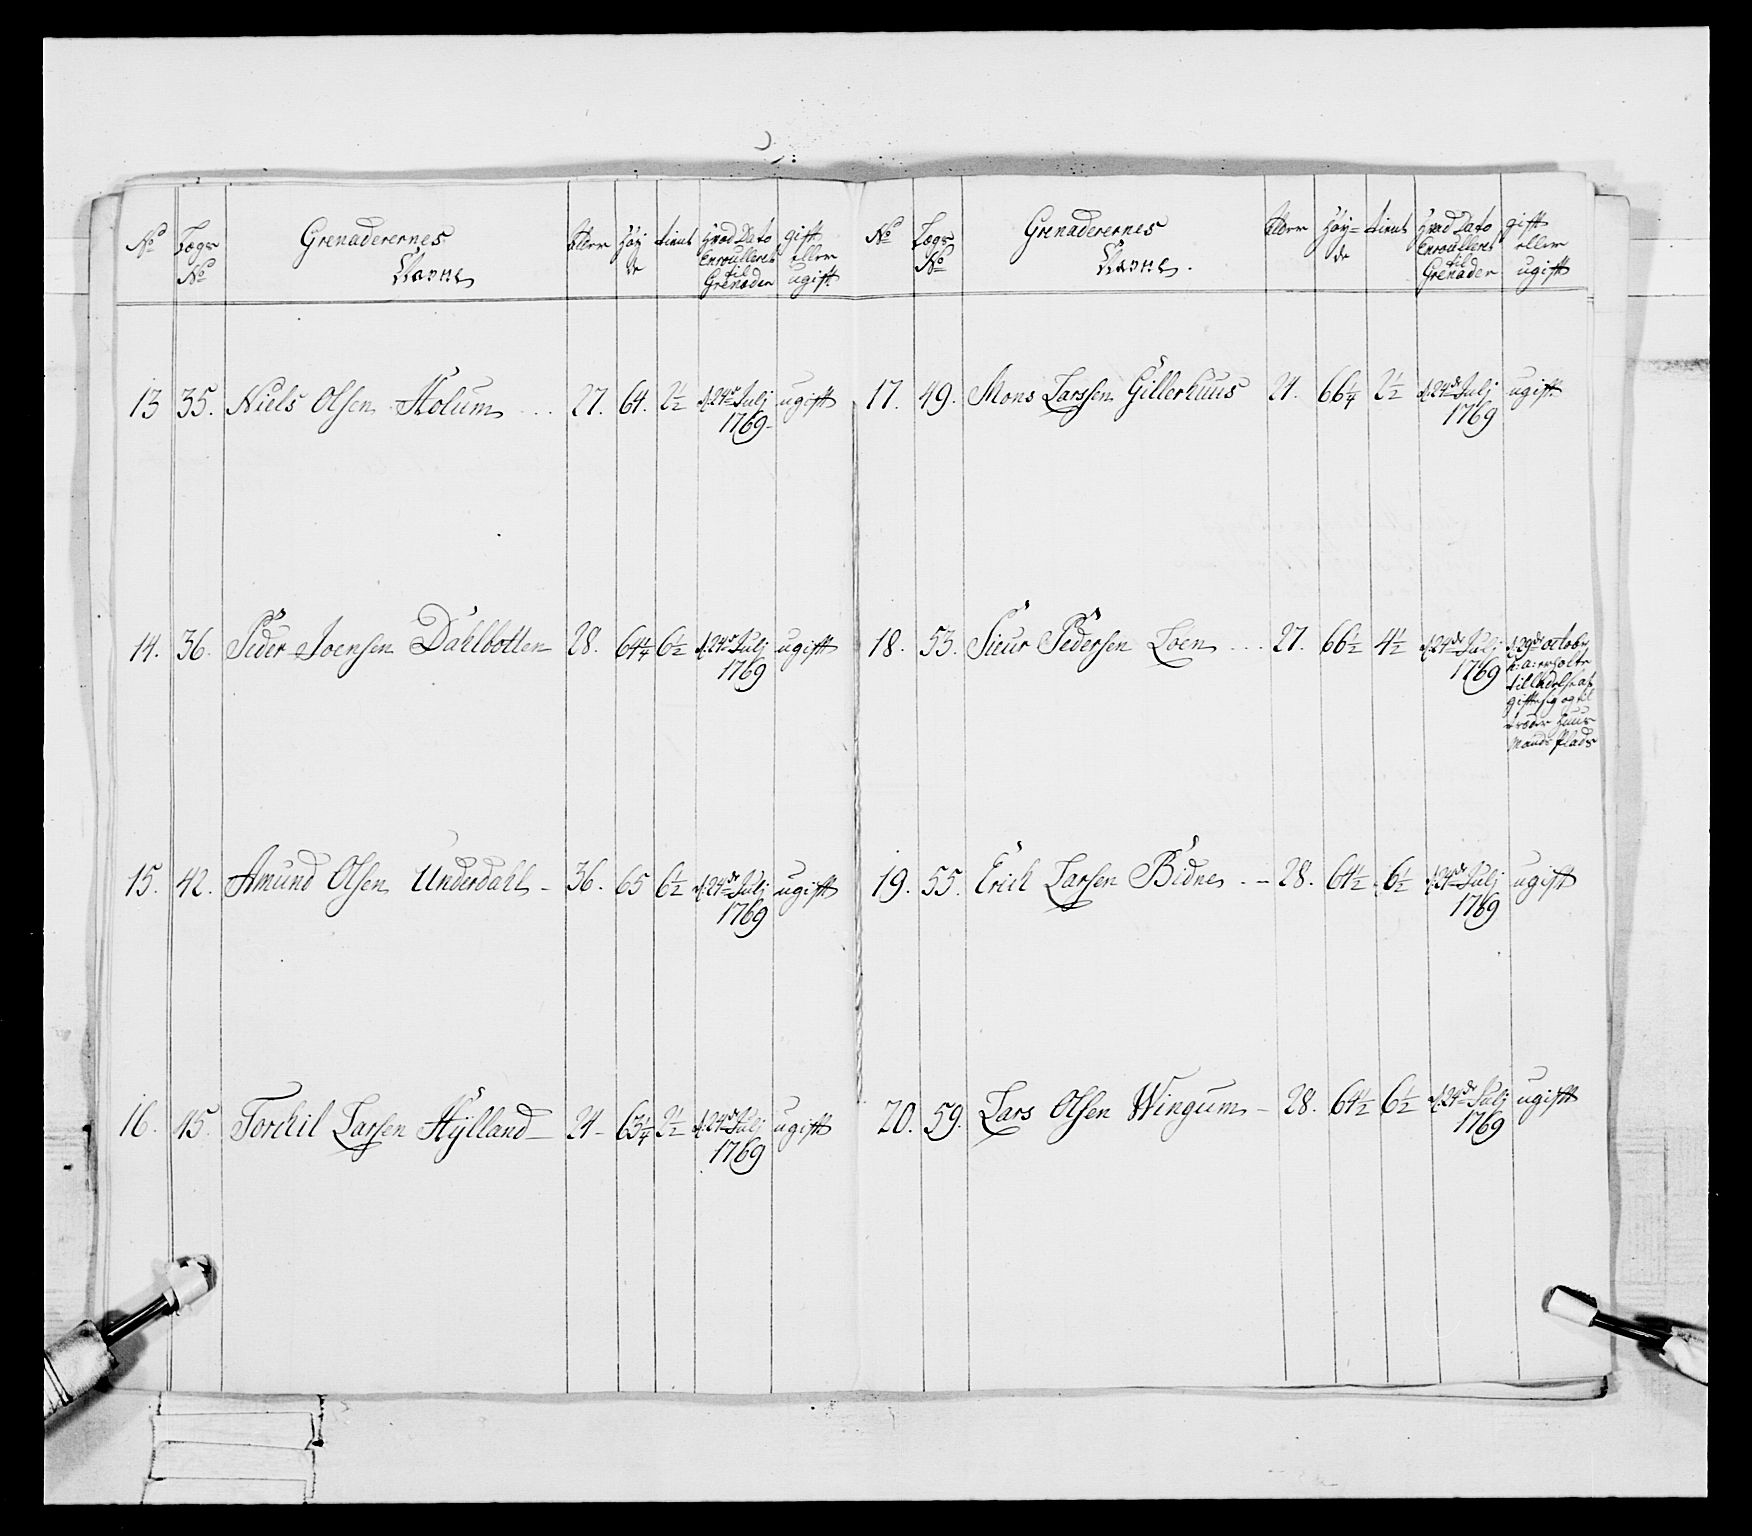 No Lægs No Grenaderernes Navne Alder Høy de tient Hvad Dato Enroulleret til Grenader gift eller ugift
13 35. Niels Olsen Holum 27. 64. 2½ d. 24de Julj 1769 ugift
14. 36. Peder Joensen Dahlbotten 28. 64¼ 6½ d. 24de Julj 1769 ugift
15. 42. Amund Olsen Underdahl 36. 65 6½ d. 24de Julj 1769 ugift
16. 45. Torchil Larsen Hÿlland 24 63¼ 2½ d. 24de Julj 1769 ugift
No Lægs No Grenaderernes Navne. Alder Høy= de tient Hvad Dato Enroulleret til Grenader gift eller ugift
17. 49. Mons Larssen Gillerhuus 21. 66¼ 2½ d. 24de Julj 1769 ugift
18. 53. Siur Pedersen Loen 27. 66½ 4½ d. 24de Julj 1769 d: 29de octobr h: a: erholte tilladelse at gifte sig og til træder Huus Mands Plads
19. 55. Erich Larsen Bidne 28. 64½ 6½ d. 24de Julj 1769 ugift
20. 59. Lars Olsen Wingum 28. 64½ 6½ d. 24de Julj 1769 ugift